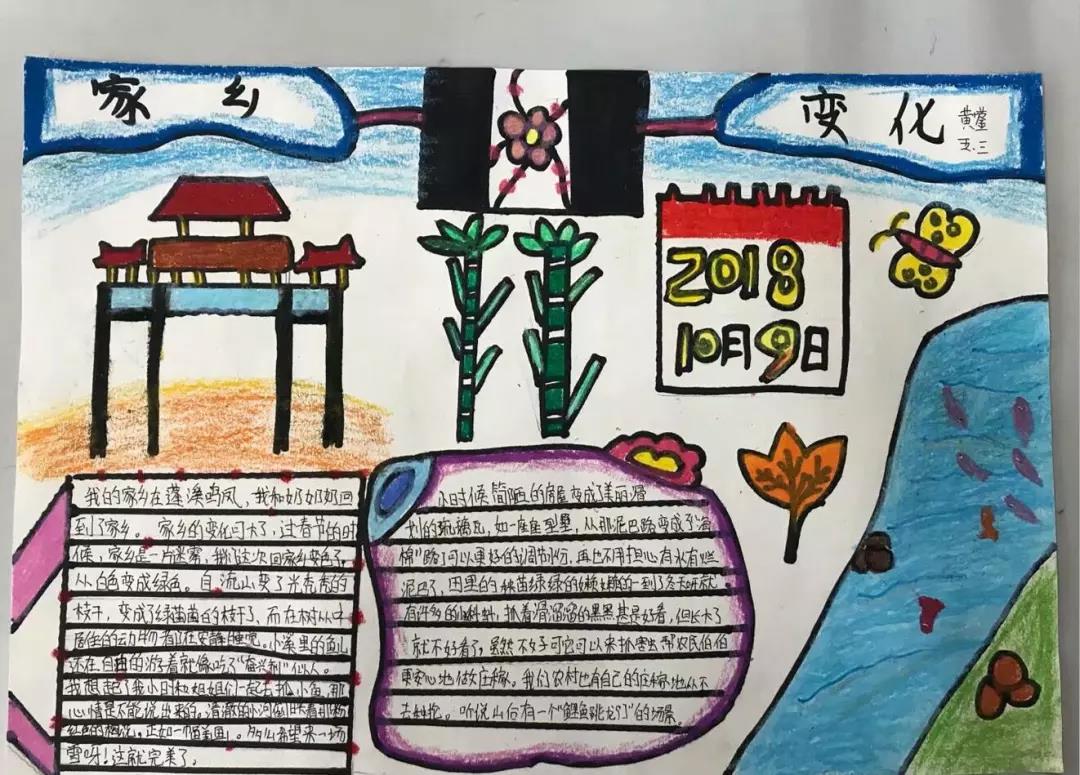 家乡
变化
黄莹
五.三
2018
10月9日
我的家乡在蓬溪鸣凤、我和奶奶奶回
到了家乡。家乡的变化可大了,过春节的时
候,家乡是一片迷雾,我这次回家乡变色了,
从白色变成绿色。自流山变了光秃秃的
枝干,变成了绿茵茵的枝干、而在树从中
居住的动物都在安静睡觉。小溪里的鱼儿
还在自由的游着就像吃了"奋兴剂"似人。
我想起了我小时和姐姐们一起去抓小鱼,那
心情是不能说出来的,清澈的小河倒
的 正如一幅画,多么希望来一场
雪呀!这就完美了。
小时候简陋的房屋变成了美丽
的琉璃瓦,如一座座型墅,从那泥巴路变成了"海
棉"路,可以更好的调节水,再也不用担心有水有
泥巴了,田里的秧苗绿绿的
有许多的蝌蚪,抓着滑溜溜的黑黑甚是好看,但长大了
就不好看了,虽然不好可它可以来抓害虫帮农民伯伯
更安心地做庄稼。我们农村也有自己的庄稼地从不
去 。听说山后有一个"鲤鱼跳龙门"的场景。